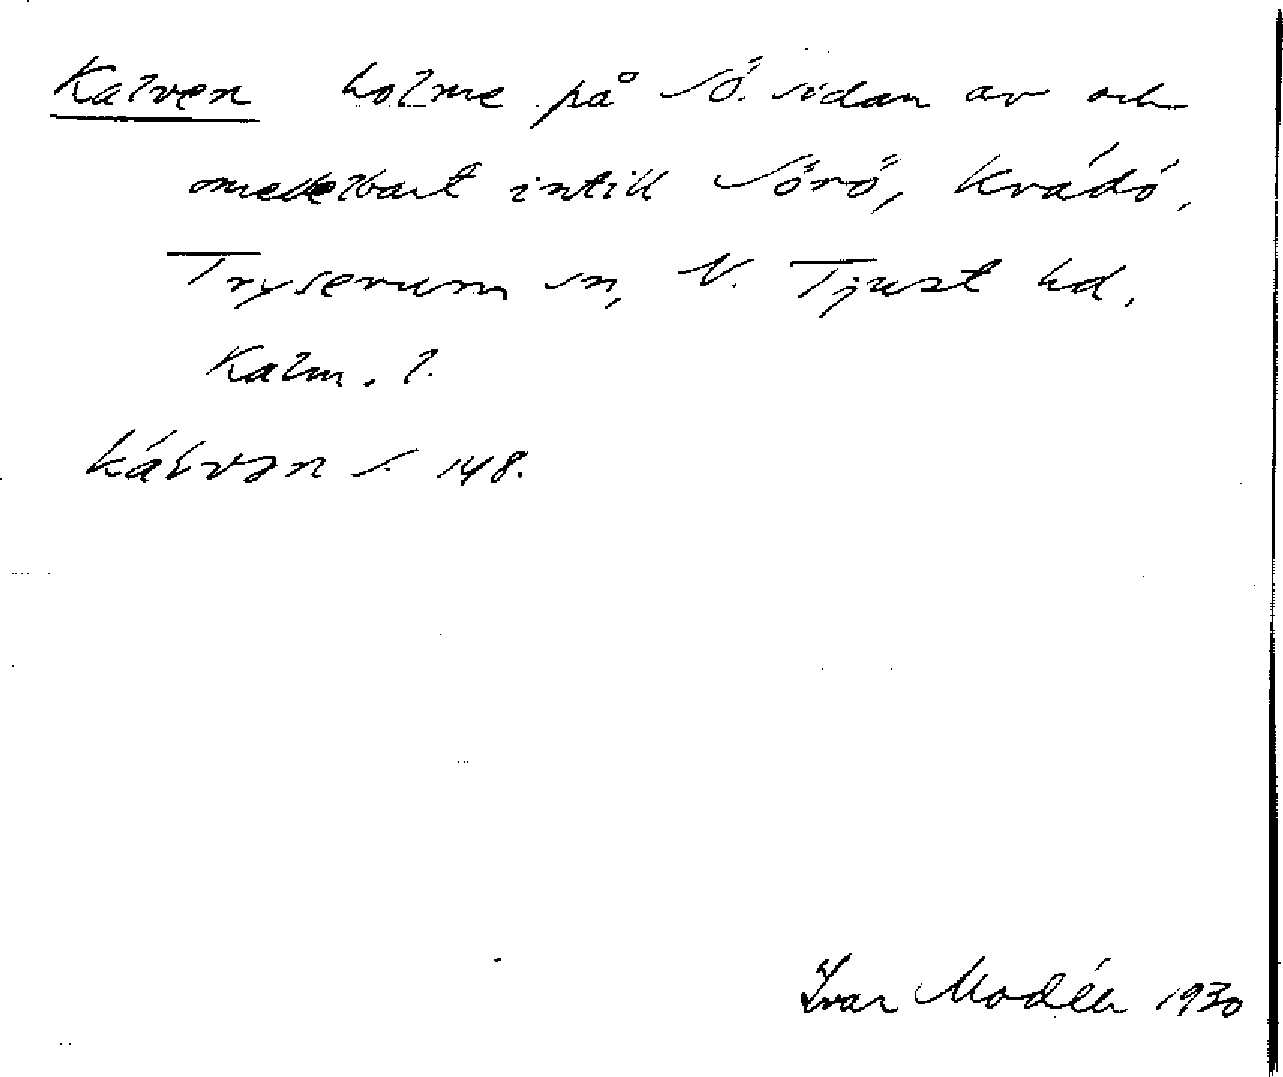 Kalven holme på SÖ. sidan av och
omedelbart intill Sörö, Kvädö,
Tryserum sn, N. Tjust hd.
Kalm. l.
kálvən s. 148.
Ivar Modéer 1930